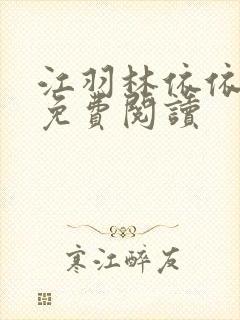 江羽林依依
免費閱讀
寒江醉友